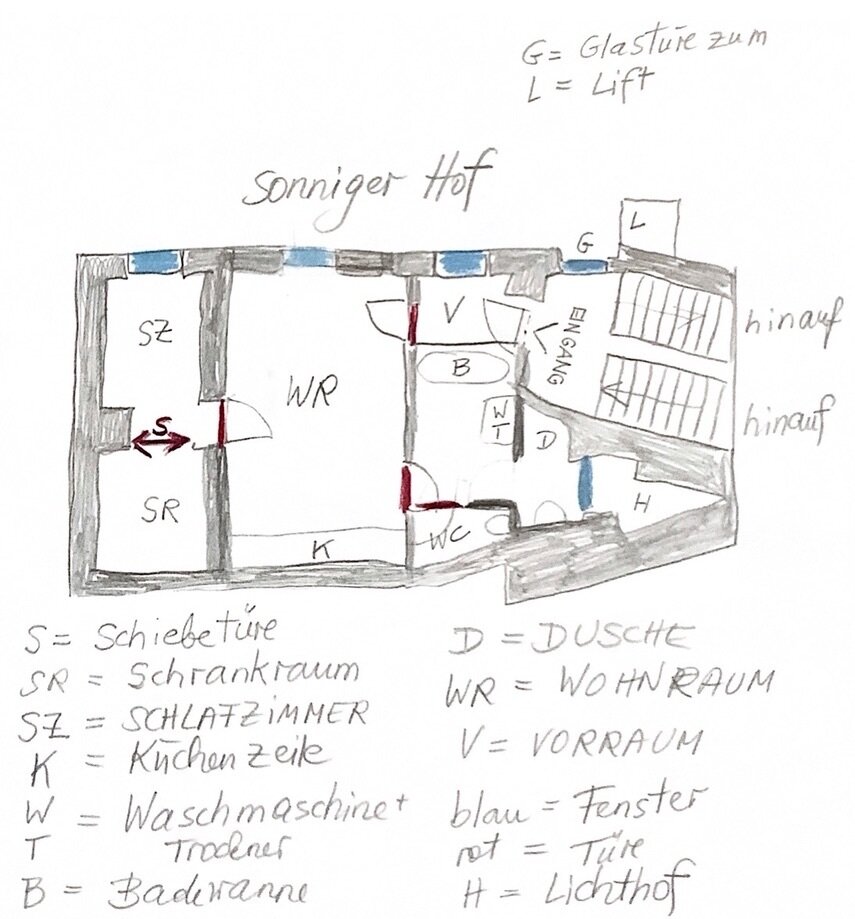 G = Glastüre zum
L = Lift
Sonniger Hof
L
G
SZ
V
EINGANG
hinauf
WR
B
S
W
T
D
hinauf
SR
H
K
WC
S = Schiebetüre
SR = Schrankraum
SZ = SCHLAFZIMMER
K = Küchenzeile
W = Waschmaschine +
T Trockner
B = Badewanne
D = DUSCHE
WR = WOHNRAUM
V = VORRAUM
blau = Fenster
rot = Türe
H = Lichthof